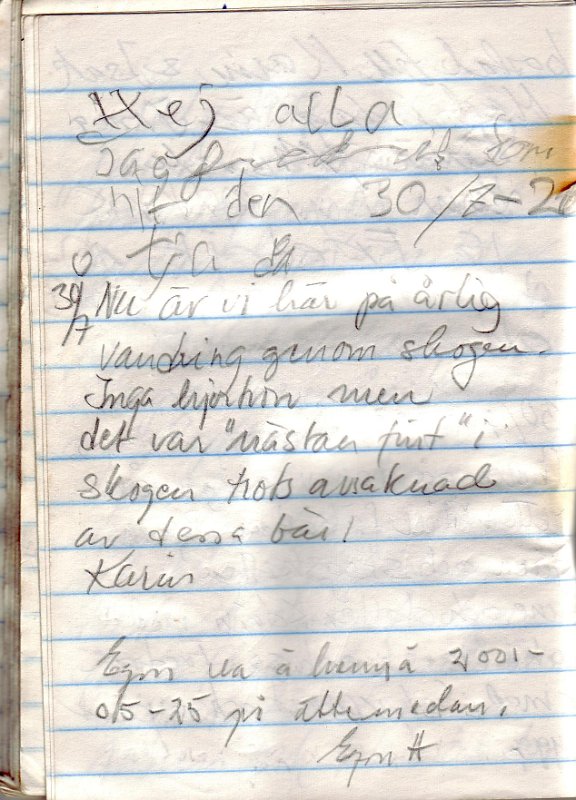 Hej alla
Jag som
den 30/7-20
tja
30/7 Nu är vi här på årlig
vandring genom skogen.
Inga hjortron men
det var "nästan fint" i
skogen trots avsaknad
av dessa bär!
Karin
Egon va å 2001-
05-25 på
Egon H